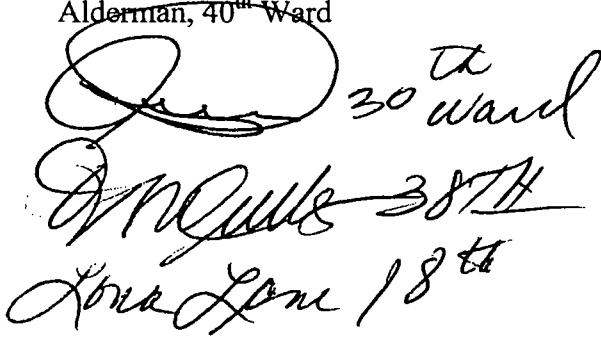 Alderman, 40th Ward
30th Ward
38TH
Lona Lane 18th